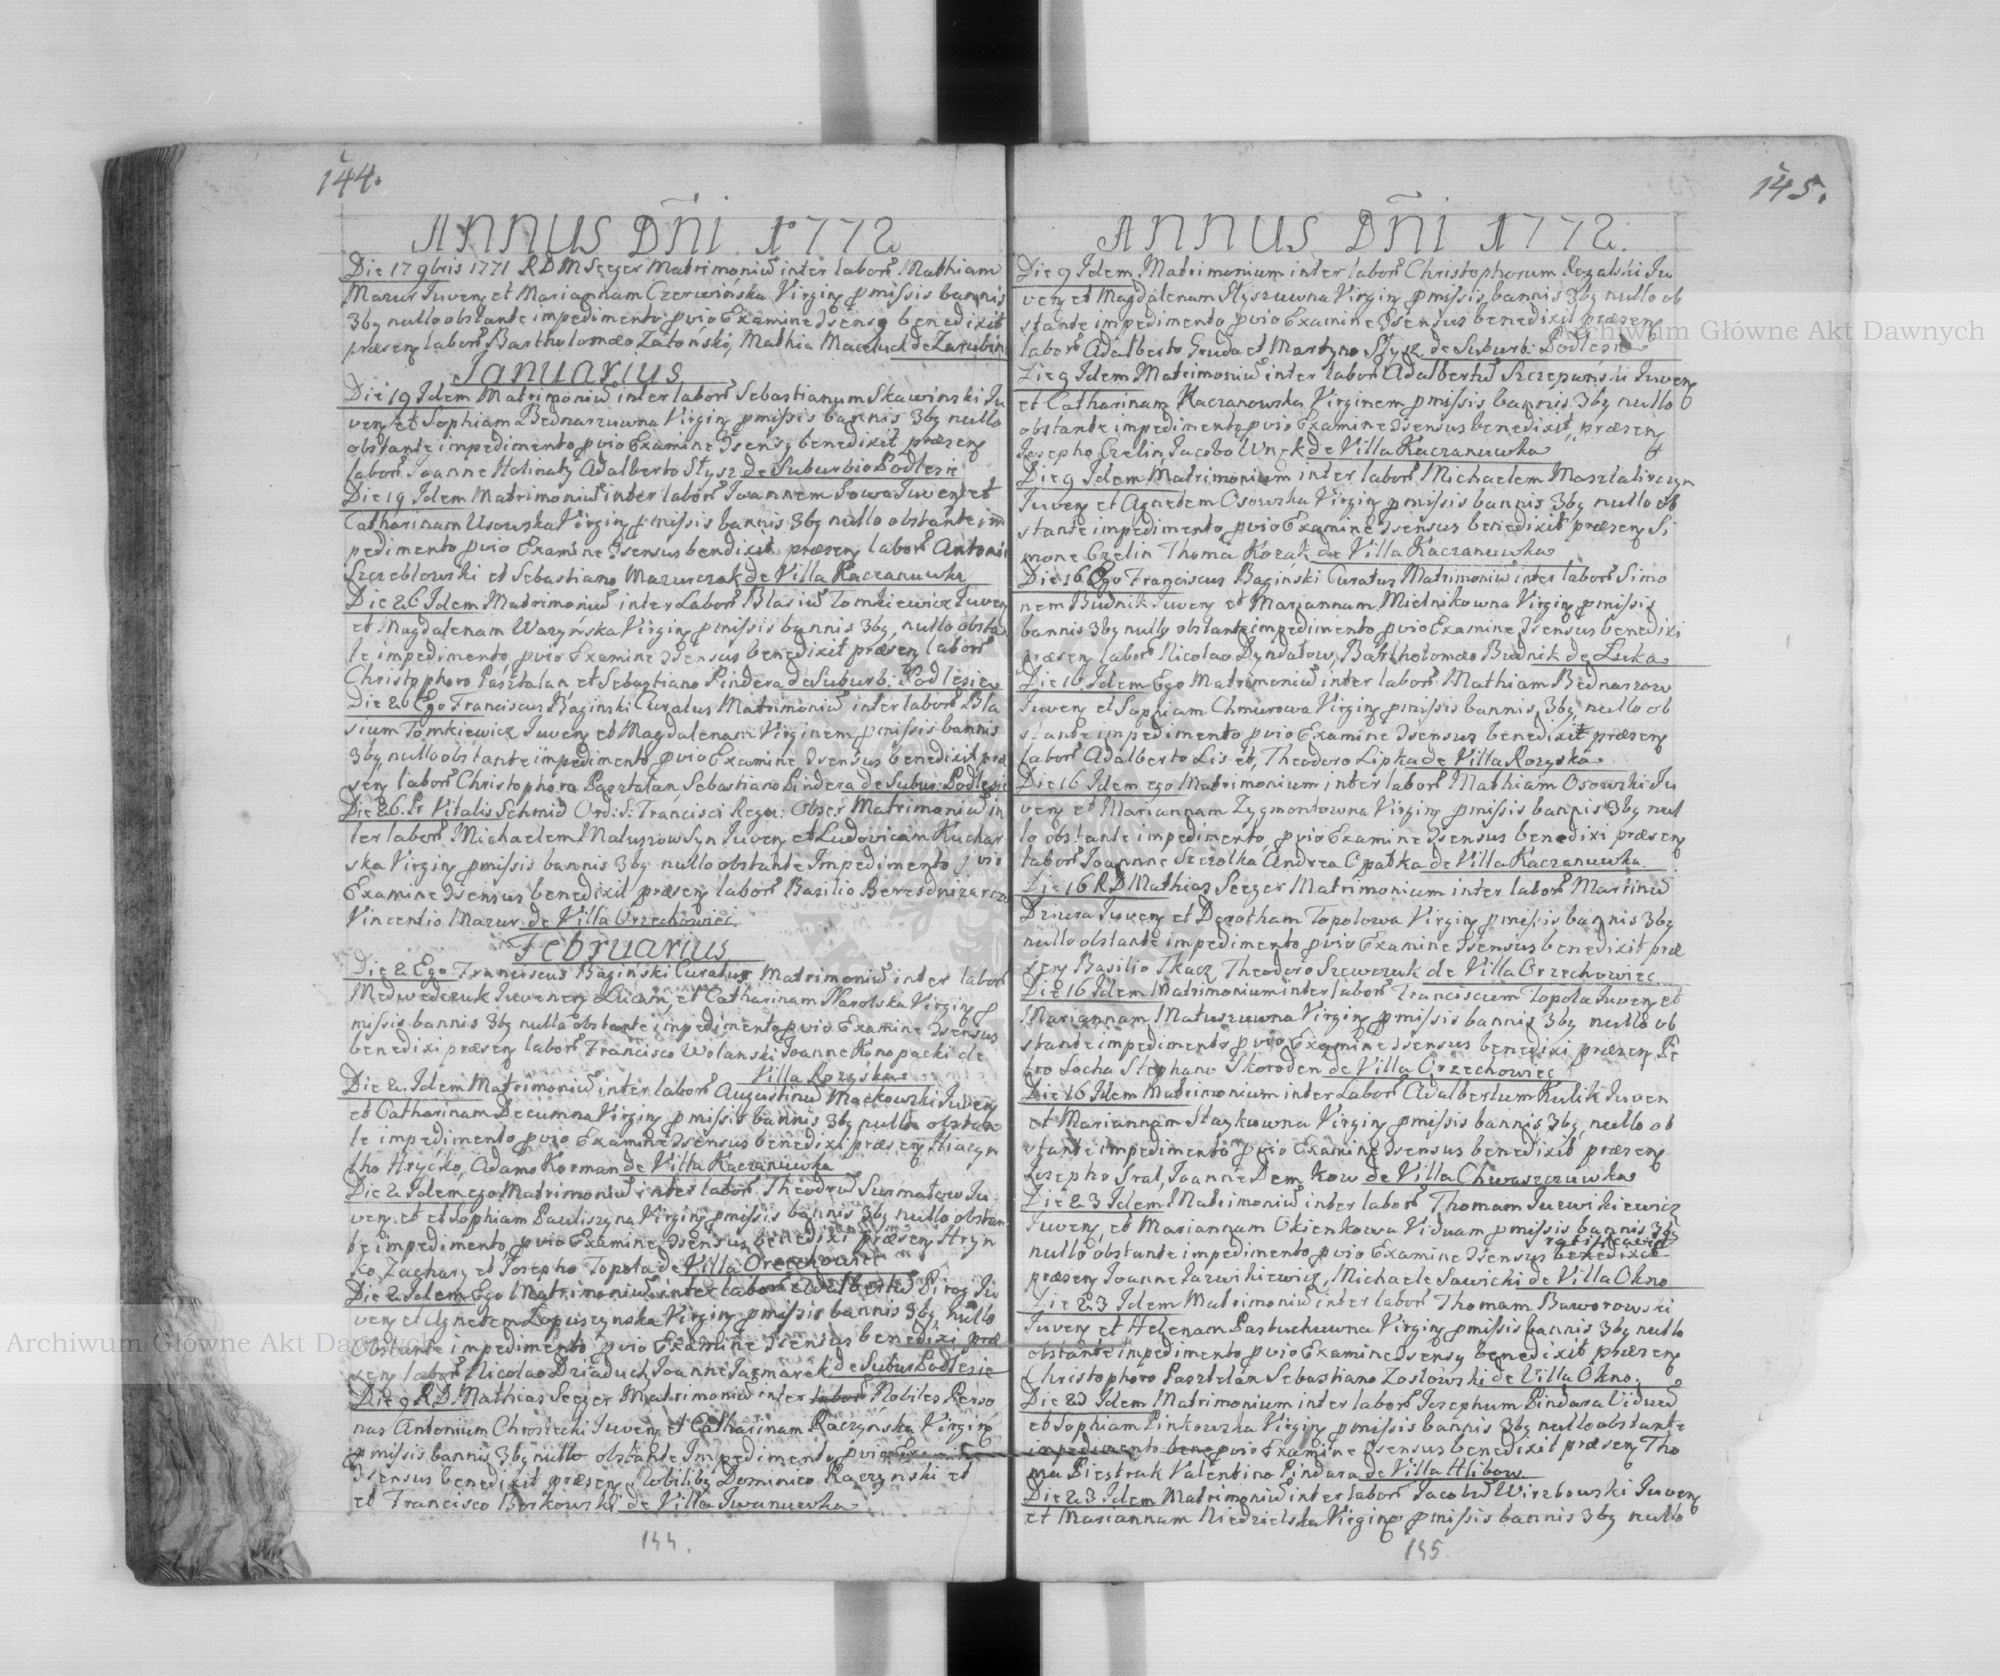 144.
ANNUS Dñi 1772
Die 17 9bris 1771 R D M Seeger Matrimoniũ inter labor. Mathiam
Mazur Iuven et Mariannam Czerwińska Virgin pmissis bannis
3bg nullo obstante impedimento pvio Examine 3sensq benedixit
præsen labor Bartholomæo Zatoński, Mathia Maciuck de Zarubin
Januarius
Die 19 Idem Matrimoniũ inter labor Sebastianum Skawinski Iu
ven et Sophiam Bednarzuwna Virgin pmissis bannis 3bg nullo
obstante impedimento pvio Examine 3sensq benedixit præsen
labor. Joanne Holinaty Adalberto Stysz de Suburbio Podlesie
Die 19 Idem Matrimoniũ inter labor Joannem Sowa Iuven et
Catharinam Usowska Virgin pmissis bannis 3bg nullo obstante im
pedimento pvio Examine 3sensus bendixit præsen labor Antoni
Szczeblowski et Sebastiano Mazurczak de Villa Kaczanuwka
Die 26 Idem Matrimoniũ inter Labor Blasiũ Tomkiewicz Iuven
et Magdalenam Warzyńska Virgin pmissis bannis 3bg, nullo obsta
te impedimento pvio Examine 3sensus benedixit præsen labor
Christophoro Pasztalan et Sebastiano Pindera de Suburb: Podlesie
Die 26 Ego Franciscus Baginski Curatus Matrimoniũ inter labor Bla
sium Tomkiewicz Iuven et Magdalenam Virginem pmissis bannis
3bg nullo obstante impedimento pvio Examine 3sensus benedixit præ
sen labor Christophoro Pasztalan, Sebastiano Pindera de Subur: Podlesie
Die 26. Pr Vitalis Schmid Ord: S: Francisci Regu: Obser Matrimoniũ in
ter labor Michaelem Matuszow Syn Iuven et Ludovicam Kuchar
ska Virgin pmissis bannis 3bg nullo obstante Impedimento pvio
Examine 3sensus benedixit præsen labor Basilio Beresdnizarczu
Vincentio Mazur de Villa Orzechowiec
Februarius
Die 2 Ego Franciscus Baginski Curatus Matrimoniũ inter labor
Medwedczuk Iuvenem Lucam et Catharinam Narolska Virgin p
missis bannis 3bg nullo obstante impedimento pvio Examine 3sensus
benedixi præsen labor Francisco Wolanski Joanne Konopacki de
Villa Rozyska
Die 2. Idem Matrimoniũ inter labor Augustinũ Mackowski Iuven
et Catharinam Decumna Virgin pmissis bannis 3bg nullo obstan
te impedimento pvio Examine 3sensus benedixi præsen Hiacyn
tho Hryćko, Adamo Korman de Villa Kaczanuwka
Die 2 Idem ego Matrimoniũ inter labor Theodrũ Surmatow Iu
ven et et Sophiam Pauliszyna Virgin pmissis bannis 3bg nullo obstan
te impedimento pvio Examine 3sensus benedixi præsen Hryn
ko Zachary et Josepho Topola de Villa Orzechowiec
Die 2 Idem Ego Matrimoniũ inter labor Adalbertũ Pirog Iu
ven et Agnetem Lopuszynska Virgin pmissis bannis 3bg, nullo
obstante impedimento pvio Examine 3sensus benedixi præ
sen labor Nicolao Dziaduch Joanne Jazmarek de Subur Podlesie
Die 9 R D Mathias Seeger Matrimoniũ inter labor Nobiles Perso
nas Antonium Chrostecki Iuven et Catharinam Raczynska Virgin
pmissis bannis 3bg nullo obstante Impedimento pvio Examine
3sensus benedixit præsen Nobilibg Dominico Raczynski et
et Francisco Borkowski de Villa Iwanuwka
144.
145.
ANNUS Dñi 1772.
Die 9 Idem Matrimonium inter labor Christophorum Rozalski Iu
ven et Magdalenam Styszuwna Virgin pmissis bannis 3bg nullo ob
stante impedimento pvio Examine 3sensus benedixit præsen
labor Adalberto Gruda et Martyno Stysz de Suburb: Podlesie
Die 9 Idem Matrimoniũ inter labor Adalbertũ Szczepanski Iuven
et Catharinam Kaczanowska Virginem pmissis bannis 3bg nullo
obstante impedimento pvio Examine 3sensus benedixit præsen
Josepho Czelin Jacobo Wnęk de Villa Kaczanuwka
Die 9 Idem Matrimonium inter labor Michaelem Masztalirczyn
Iuven et Agnetem Osowska Virgin pmissis bannis 3bg nullo ob
stante impedimento pvio Examine 3sensus benedixit præsen Si
mone Czelin Thoma Kozak de Villa Kaczanuwka
Die 16 Ego Franciscus Baginski Curatus Matrimoniũ inter labor Simo
nem Budnik Iuven et Mariannam Mielnikowna Virgin pmissis
bannis 3bg nullo obstante impedimento pvio Examine 3sensus benedixi
præsen labor Nicolao Dyndatow, Bartholomæo Budnik de Luka
Die 16 Idem Ego Matrimoniũ inter labor Mathiam Bednarzow
Iuven et Sophiam Chmurowa Virgin pmissis bannis 3bg nullo ob
stante impedimento pvio Examine 3sensus benedixit præsen
labor Adalberto Lis et Theodoro Lipka de Villa Rozyska
Die 16 Idem ego Matrimonium inter labor Mathiam Osowski Iu
ven et Mariannam Zygmontowna Virgin pmissis bannis 3bg nul
lo obstante impedimento, pvio Examine 3sensus benedixi præsen
labor Joannne Szczolka, Andrea Opatka de Villa Kaczanuwka
Die 16 R D Mathias Seeger Matrimonium inter labor Martinũ
Dziura Iuven et Dorotham Topolowa Virgin pmissis bannis 3bg
nullo obstante impedimento pvio Examine 3sensus benedixit præ
sen Basilio Tkacz Theodoro Szewczuk de Villa Orzechowiec
Die 16 Idem Matrimonium inter labor Franciscum Topola Iuven et
Mariannam Matuszuwna Virgin pmissis bannis 3bg nullo ob
stante impedimento pvio Examine 3sensus benedixi præsen Pe
tro Socha Stephano Skoroden de Villa Orzechowiec
Die 16 Idem Matrimonium inter Labor Adalbertum Kulik Iuven
et Mariannam Staykowna Virgin pmissis bannis 3bg, nullo ob
stante impedimento pvio Examine 3sensus benedixit præsen
Josepho Sral, Joanne Demkow de Villa Chwaszczuwka
Die 23 Idem Matrimoniũ inter labor Thomam Jurwikiewicz
Iuven et Mariannam Okienkowa Viduam pmissis bannis 3bg
nullo obstante impedimento pvio Examine 3sensus benedixit ratificavit
præsen Joanne Jazwikiewicz, Michaele Sawicki de Villa Okno
Die 23 Idem Matrimoniũ inter labor Thomam Baworowski
Iuven et Helenam Pastuchuwna Virgin pmissis bannis 3bg nullo
obstante impedimento pvio Examine 3sensq benedixit præsen
Christophoro Pasztelan Sebastiano Zaslowski de Villa Okno.
Die 23 Idem Matrimonium inter labor Josephum Pindara Viduũ
et Sophiam Pinkowska Virgin pmissis bannis 3bg nullo obstante
impedimento bene pvio Examine 3sensus benedixit præsen Tho
ma Piestrak Valentino Pindara de Villa Hlibow
Die 23 Idem Matrimoniũ inter labor Jacobũ Wirzbowski Iuven
et Mariannam Niedzielska Virgin pmissis bannis 3bg nullo
145
Archiwum Główne Akt Dawnych
Archiwum Główne Akt Dawnych